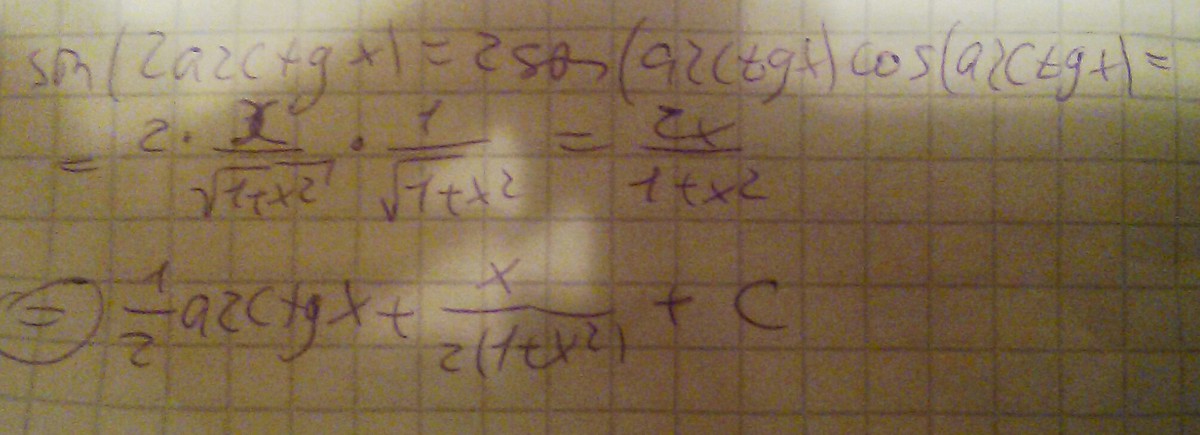 sin(2arctg x) = 2sin(arctgx)cos(arctgx) =
= 2 · x/√(1+x²) · 1/√(1+x²) = 2x/(1+x²)
(=) 1/2 arctgx + x/(2(1+x²)) + C